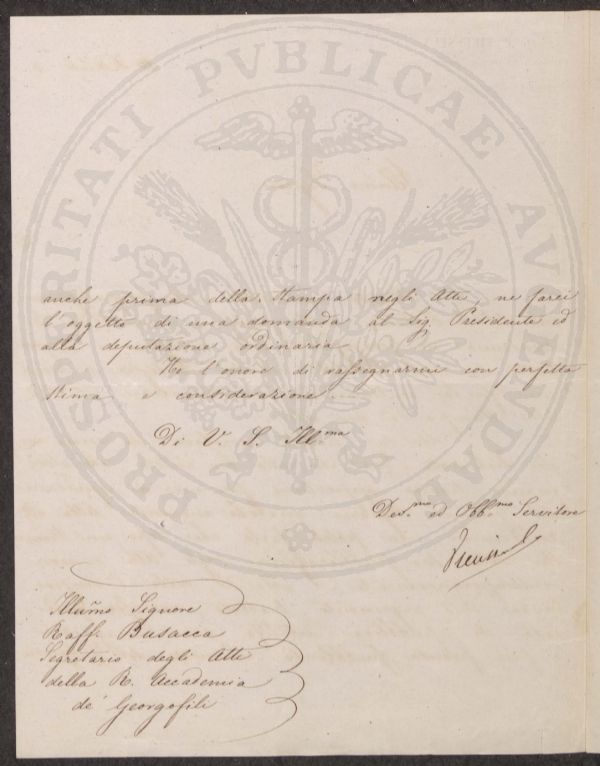 PROSPERITATI PVBLICAE AVGENDAE
anche prima della stampa negli Atti, ne farei
l'oggetto di una domanda al Sig. Presidente ed
alla deputazione ordinaria.
Ho l'onore di rassegnarmi con perfetta
stima e considerazione.
Di V. S. Ill.ma
Dev.mo ed Obb.mo Servitore
Illũmo Signore
Raff. Busacca
Segretario degli Atti
della R. Accademia
de' Georgofili